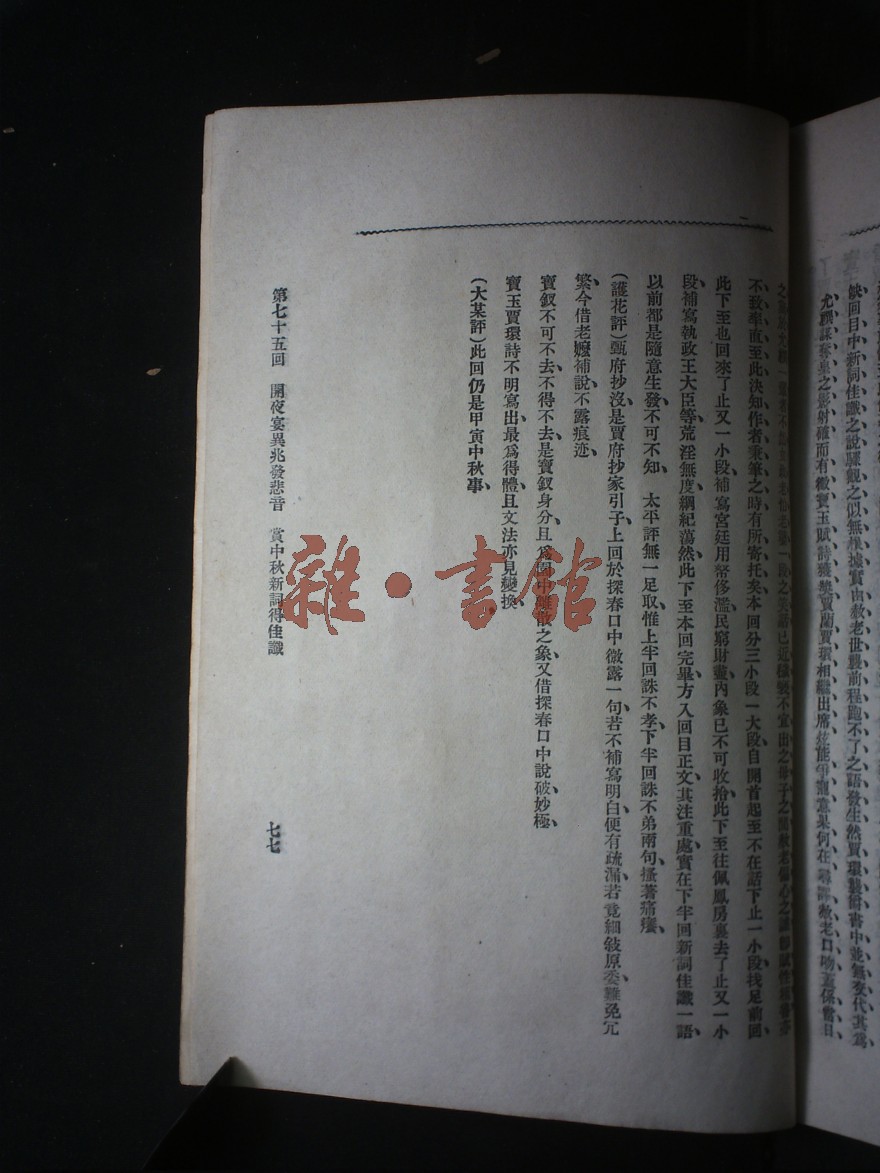 缺回目中新詞佳讖之說驟觀之似無根據實由赦老世襲前程跑不了之語發生然賈環襲爵書中並無交代其爲
不致率直至此決知作者秉筆之時有所寄托矣本回分三小段一大段自開首起至不在話下止一小段找足前回
此下至也回來了止又一小段補寫宮廷用帑侈濫民窮財盡內象已不可收拾此下至往佩鳳房裏去了止又一小
段補寫執政王大臣等荒淫無度綱紀蕩然此下至本回完畢方入回目正文其注重處實在下半回新詞佳讖一語
以前都是隨意生發不可不知 太平評無一足取惟上半回誅不孝下半回誅不弟兩句搔著痛癢
(護花評)甄府抄沒是賈府抄家引子上回於探春口中微露一句若不補寫明白便有疏漏若竟細敍原委難免冗
繁今借老嬤補說不露痕迹
寶釵不可不去不得不去是寶釵身分且爲園中離散之象又借探春口中說破妙極
寶玉賈環詩不明寫出最爲得體且文法亦見變換
(大某評)此回仍是甲寅中秋事
第七十五回 開夜宴異兆發悲音 賞中秋新詞得佳讖
七七
雜·書館